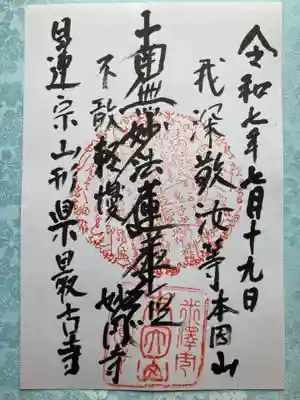 令和七年七月十九日
我深敬汝等
本因山
南無妙法蓮華経
不敢軽慢
妙 寺
日蓮宗山形県最古寺
米澤市